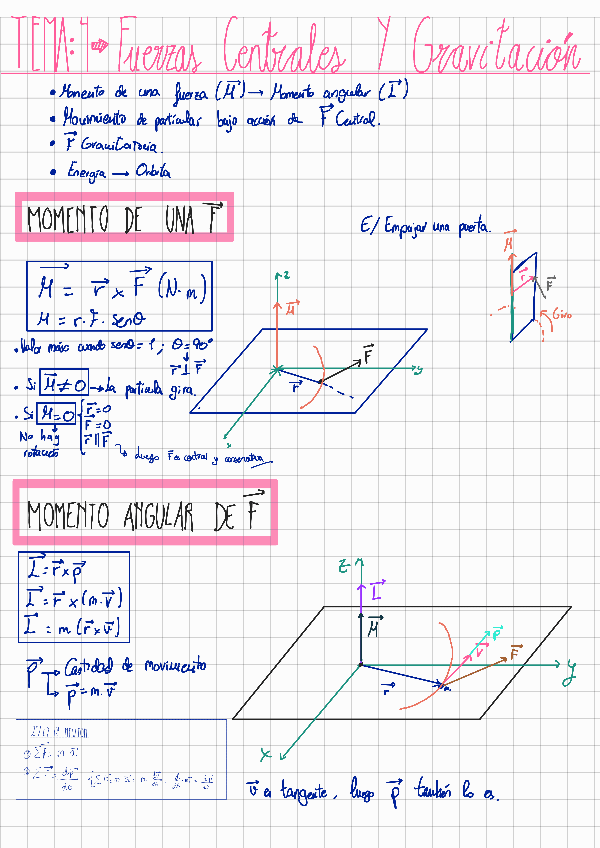 TEMA: 4 ⇨ Fuerzas Centrales Y Gravitación
• Momento de una fuerza (M⃗) → Momento angular (L⃗)
• Movimiento de particulas bajo acción de F⃗ Central.
• F⃗ Gravitatoria.
• Energía → Orbita
MOMENTO DE UNA F⃗
E/ Empujar una puerta.
M⃗ = r⃗ x F⃗ (N·m)
M = r·F·senθ
• Valor máx cuando senθ = 1 ; θ = 90°
r⃗ ⊥ F⃗
• Si M⃗ ≠ 0 → La particula gira.
• Si M = 0
r⃗ = 0
F⃗ = 0
r⃗ ∥ F⃗
No hay
rotación
↳ Luego F es central y conservativa
z
M⃗
F⃗
y
r⃗
x
M⃗
r⃗
F⃗
Giro
MOMENTO ANGULAR DE F⃗
L⃗ = r⃗ x p⃗
L⃗ = r⃗ x (m·v⃗)
L⃗ = m (r⃗ x v⃗)
p⃗ → Cantidad de movimiento
↳ p⃗ = m·v⃗
z
L⃗
M⃗
p⃗
v⃗
F⃗
y
r⃗
x
v⃗ es tangente, luego p⃗ también lo es.